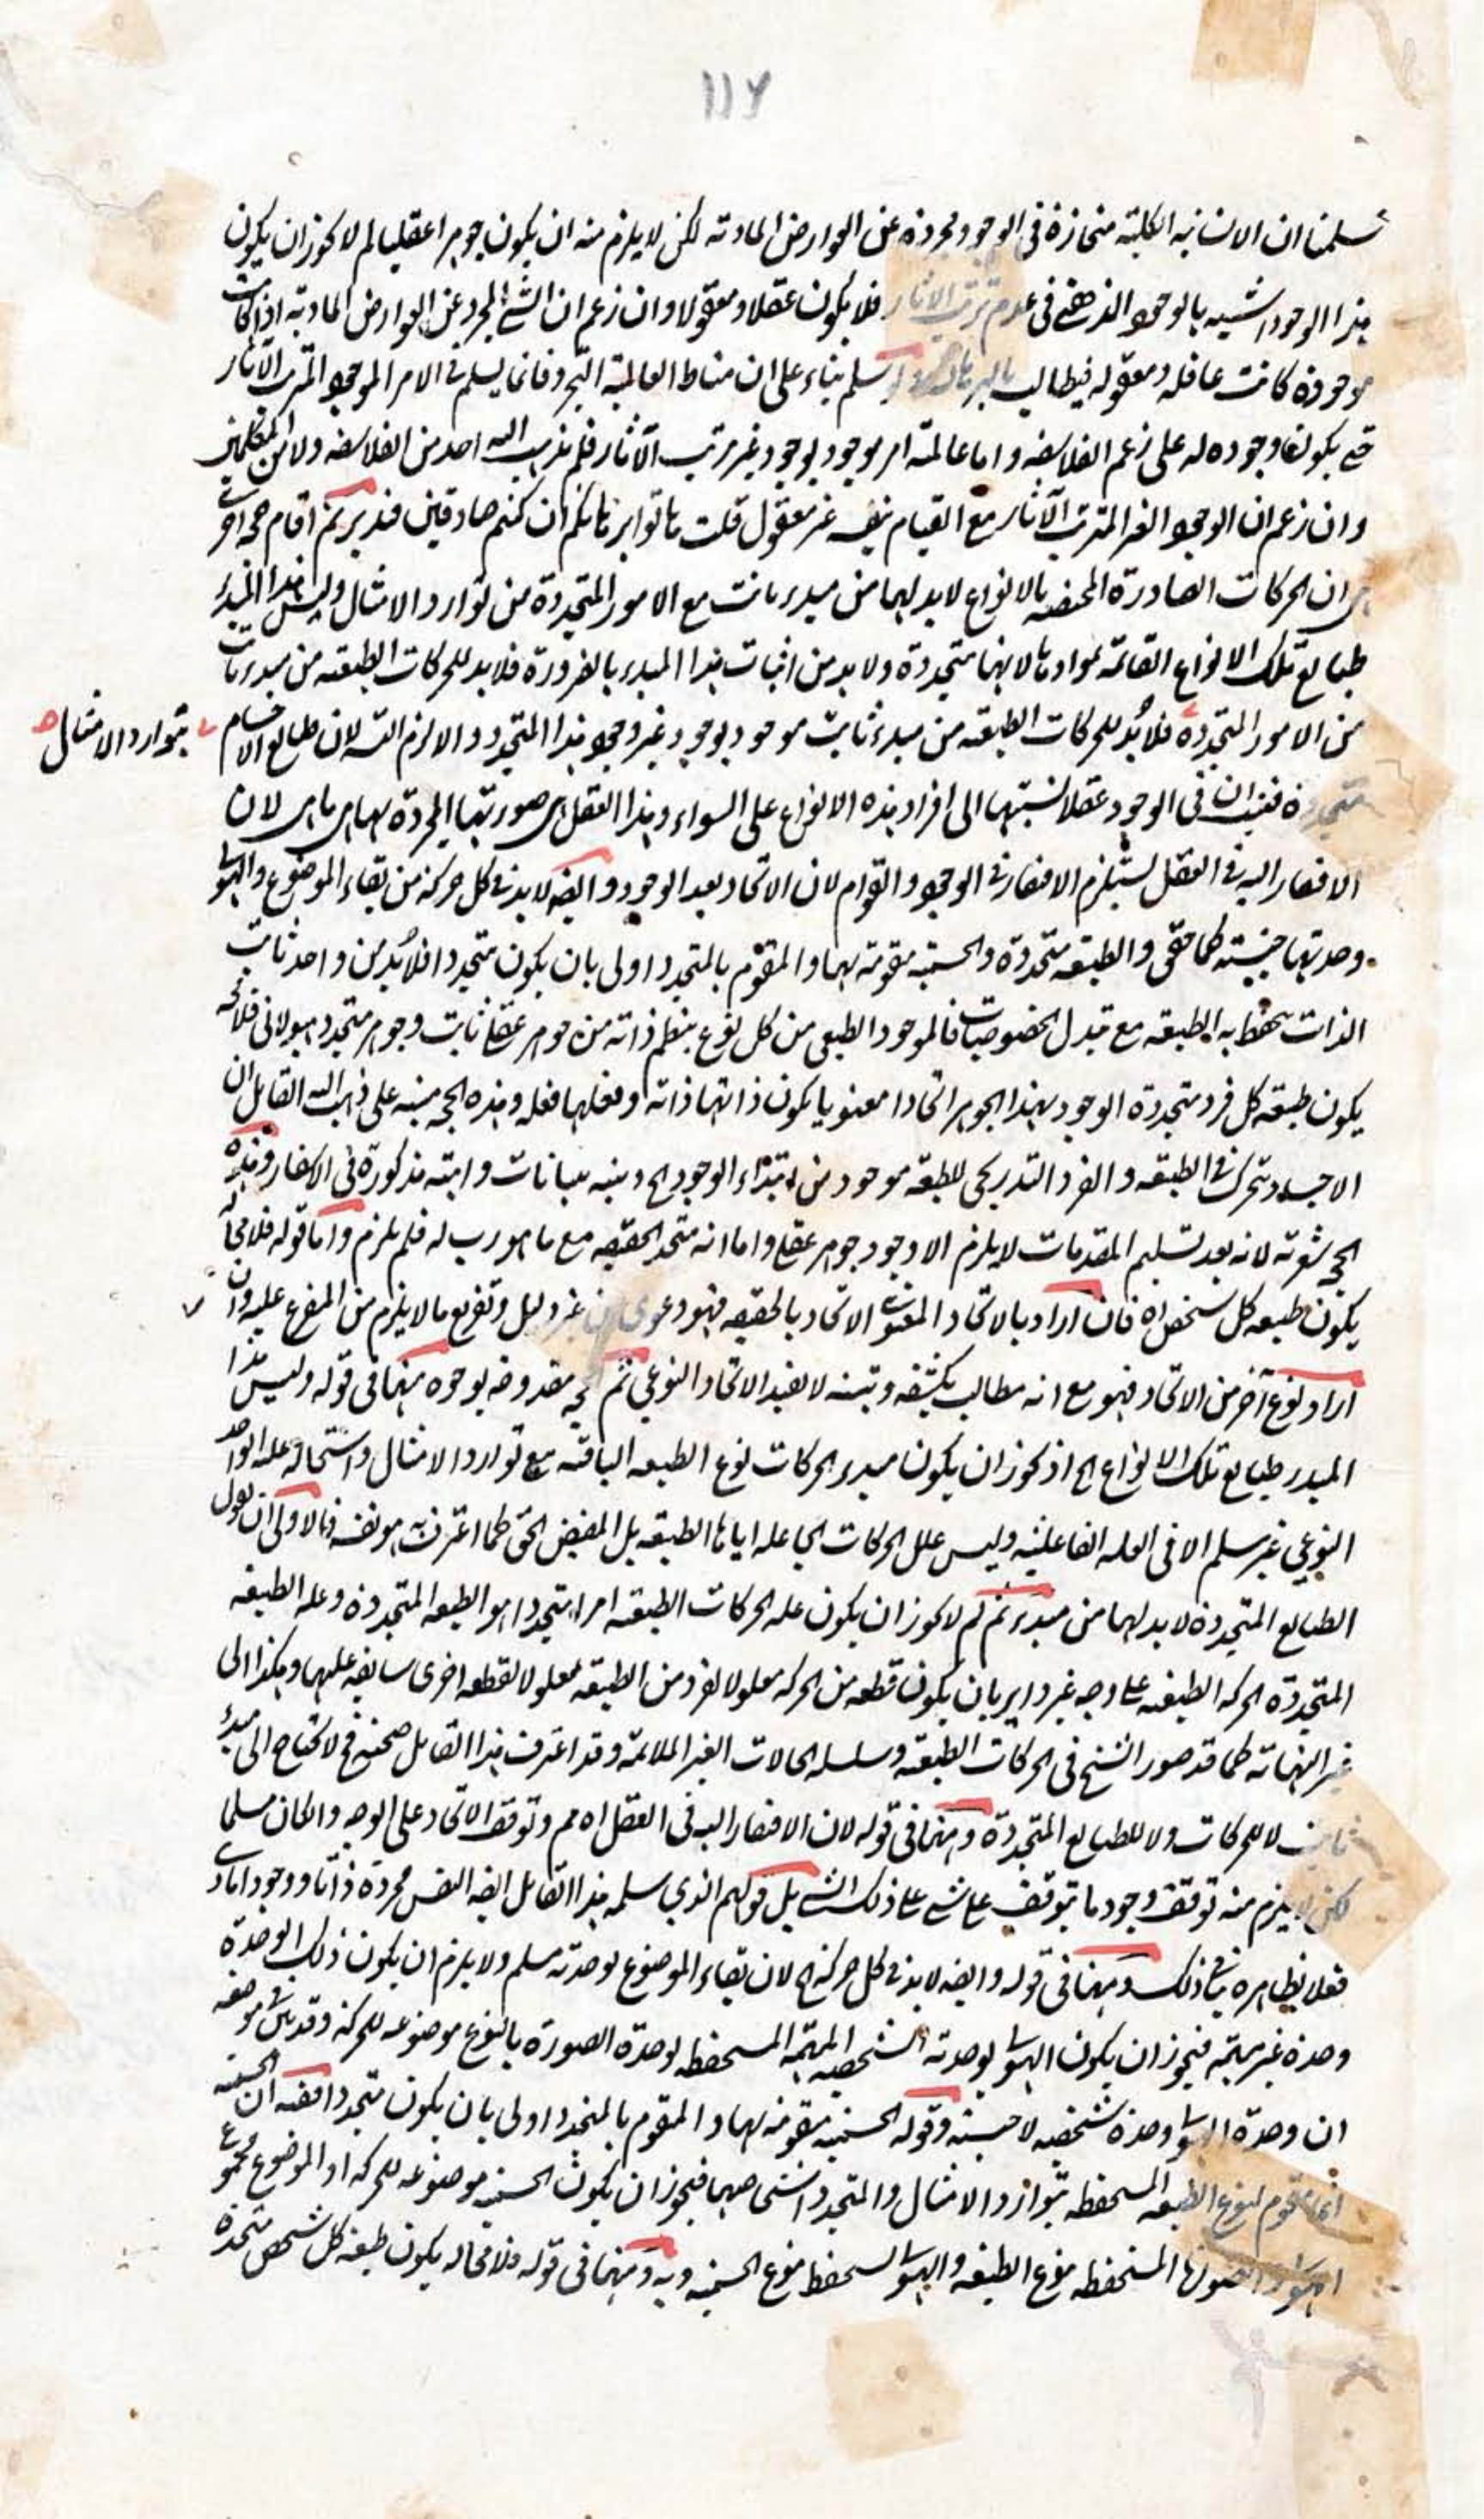 ١١٧
سلمنا ان الانسانية الكلية منحازة في الوجود مجردة عن العوارض المادية لكن لا يلزم منه ان يكون جوهرا عقليا لم لا يجوز ان يكون
هذا الوجود اشبه بالوجود الذهني في عدم ترتب الاثار فلا يكون عقلا ومعقولا وان زعم ان الشيء المجرد عن العوارض المادية اذا كانت
موجودة كانت عاقلة ومعقولة فيطالب بالبرهان ولو سلم بناء على ان مناط العالمية التجرد فانما يسلم في الامر الموجود المترتب الآثار
حتى يكون وجوده له على زعم الفلاسفة واما عالمية امر موجود بوجود غير مرتب الآثار فلم يذهب اليه احد من الفلاسفة ولا من المتكلمين
وان زعم ان الوجود الغير المترتب الآثار مع القيام بنفسه غير معقول قلت هاتوا برهانكم ان كنتم صادقين فتدبر ثم اقام حجة اخرى
هي ان الحركات الصادرة المختصة بالانواع لا بد لها من مبدء ثابت مع الامور المتجددة من توارد الامثال وليس هذا المبدء
طبايع تلك الانواع القائمة بموادها لانها متجددة ولا بد من اثبات هذا المبدء بالضرورة فلا بد للحركات الطبيعية من مبدء ثابت
من الامور المتجددة فلا بُد للحركات الطبيعية من مبدء ثابت موجود بوجود غير وجود هذا المتجدد والا لزم التسلسل لان طبايع الاجسام
بتوارد الامثال صح
متجددة فثبت ان في الوجود عقلا نسبتها الى افراد هذه الانواع على السواء وهذا العقل هي صورتها المجردة بها هي ما هي لان
الافتقار اليه في العقل يستلزم الافتقار في الوجود والقوام لان الاتحاد بعد الوجود وايضا لا بد في كل حركة من بقاء الموضوع والهيولى
وحدتها جنسية كما حقق والطبيعة متجددة والجسمية مقومة بها والمقوم بالمتجدد اولى بان يكون متجددا فلا بُد من واحد ثابت
الذات يتحفظ به الطبيعة مع تبدل الخصوصيات فالموجود الطبيعي من كل نوع ينتظم ذاته من جوهر عقلي ثابت وجوهر متجدد هيولاني فلا محالة
يكون طبيعة كل فرد متجددة الوجود بهذا الجوهر اتحادا معنويا يكون ذاتها ذاته وفعلها فعله وهذه الحجة مبنية على ما ذهب اليه القائل ان
الاجسام تتحرك في الطبيعة والفرد التدريجي للطبيعة موجود من ابتداء الوجود الخ وبينه ببيانات واهية مذكورة في الاسفار وهذه
الحجة شعرية لانه بعد تسليم المقدمات لا يلزم الا وجود جوهر عقلي واما انه متحد الحقيقة مع ما هو رب له فلم يلزم واما قوله فلا محالة
يكون طبيعة كل شخص اه فان اراد بالاتحاد المعنوي الاتحاد بالحقيقة فهو دعوى من غير دليل وتفريع ما لا يلزم من المفرع عليه وان
اراد نوع آخر من الاتحاد فهو مع انه مطالب بكشفه وتبينه لا يفيد الاتحاد النوعي ثم الحجة مقدوحة بوجوه منها في قوله وليس هذا
المبدء طبايع تلك الانواع الخ اذ يجوز ان يكون مبدء الحركات نوع الطبيعة الباقية مع توارد الامثال واستحالة علية الواحد
النوعي غير مسلم الا في العلة الفاعلية وليس علل الحركات الجاعلة اياها الطبيعة بل المفيض الحق كما اعترف به هو نفسه فالاولى ان يقول
الطبايع المتجددة لا بد لها من مبدء ثم لم لا يجوز ان يكون علة الحركات الطبيعية امرا متجددا هو الطبيعة المتجددة وعلة الطبيعة
المتجددة الحركة الطبيعية على وجه غير داير بان يكون قطعة من الحركة معلولا لفرد من الطبيعة معلولا لقطعة اخرى سابقة عليها وهكذا الى
غير النهاية كما قد صور الشيخ في الحركات الطبيعية وسلسلة الحالات الغير الملائمة وقد اعترف هذا القائل بصحته فح لا يحتاج الى مبدء
ثابت لا للحركات ولا للطبايع المتجددة ومنها في قوله لان الافتقار اليه في العقل اه مم وتوقف الاتحاد على الوجه وان كان مسلما
لكن لا يلزم منه توقف وجود ما يتوقف على شيء على ذلك الشيء بل قولهم الذي سلمه هذا القائل ايضا النفس مجردة ذاتا ووجودا مادي
فعلا بظاهره ينافي ذلك ومنها في قوله وايضا لا بد في كل حركة الخ لان بقاء الموضوع بوحدته مسلم ولا يلزم ان يكون ذلك الوحدة
وحدة غير مبهمة فيجوز ان يكون الهيولى بوحدته الشخصية المبهمة المستحفظة بوحدة الصورة بالنوع موضوعه للحركة وقد بين في موضعه
ان وحدة الهيولى وحدة شخصية لا جنسية وقوله الجسمية مقومة بها والمقوم بالمتجدد اولى بان يكون متجددا ففيه ان الجسمية
انما تقوم بنوع الطبيعة المستحفظة بتوارد الامثال والمتجدد اشخاصها فيجوز ان يكون الجسمية موضوعه للحركة او الموضوع مجموع
الهيولى المستحفظة بنوع الطبيعة والهيولى مستحفظ بنوع الجسمية وبه ومنها في قوله فلا محالة يكون طبيعة كل شخص متحدة